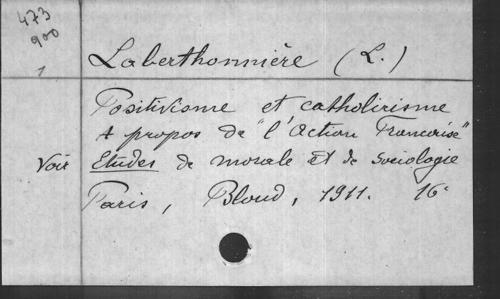 473
900
1
Laberthonnière (L.)
Positivisme et catholicisme
A propos de "l'Action Francaise"
Voir Etudes de morale et de sociologie
Paris, Bloud, 1911. 16°